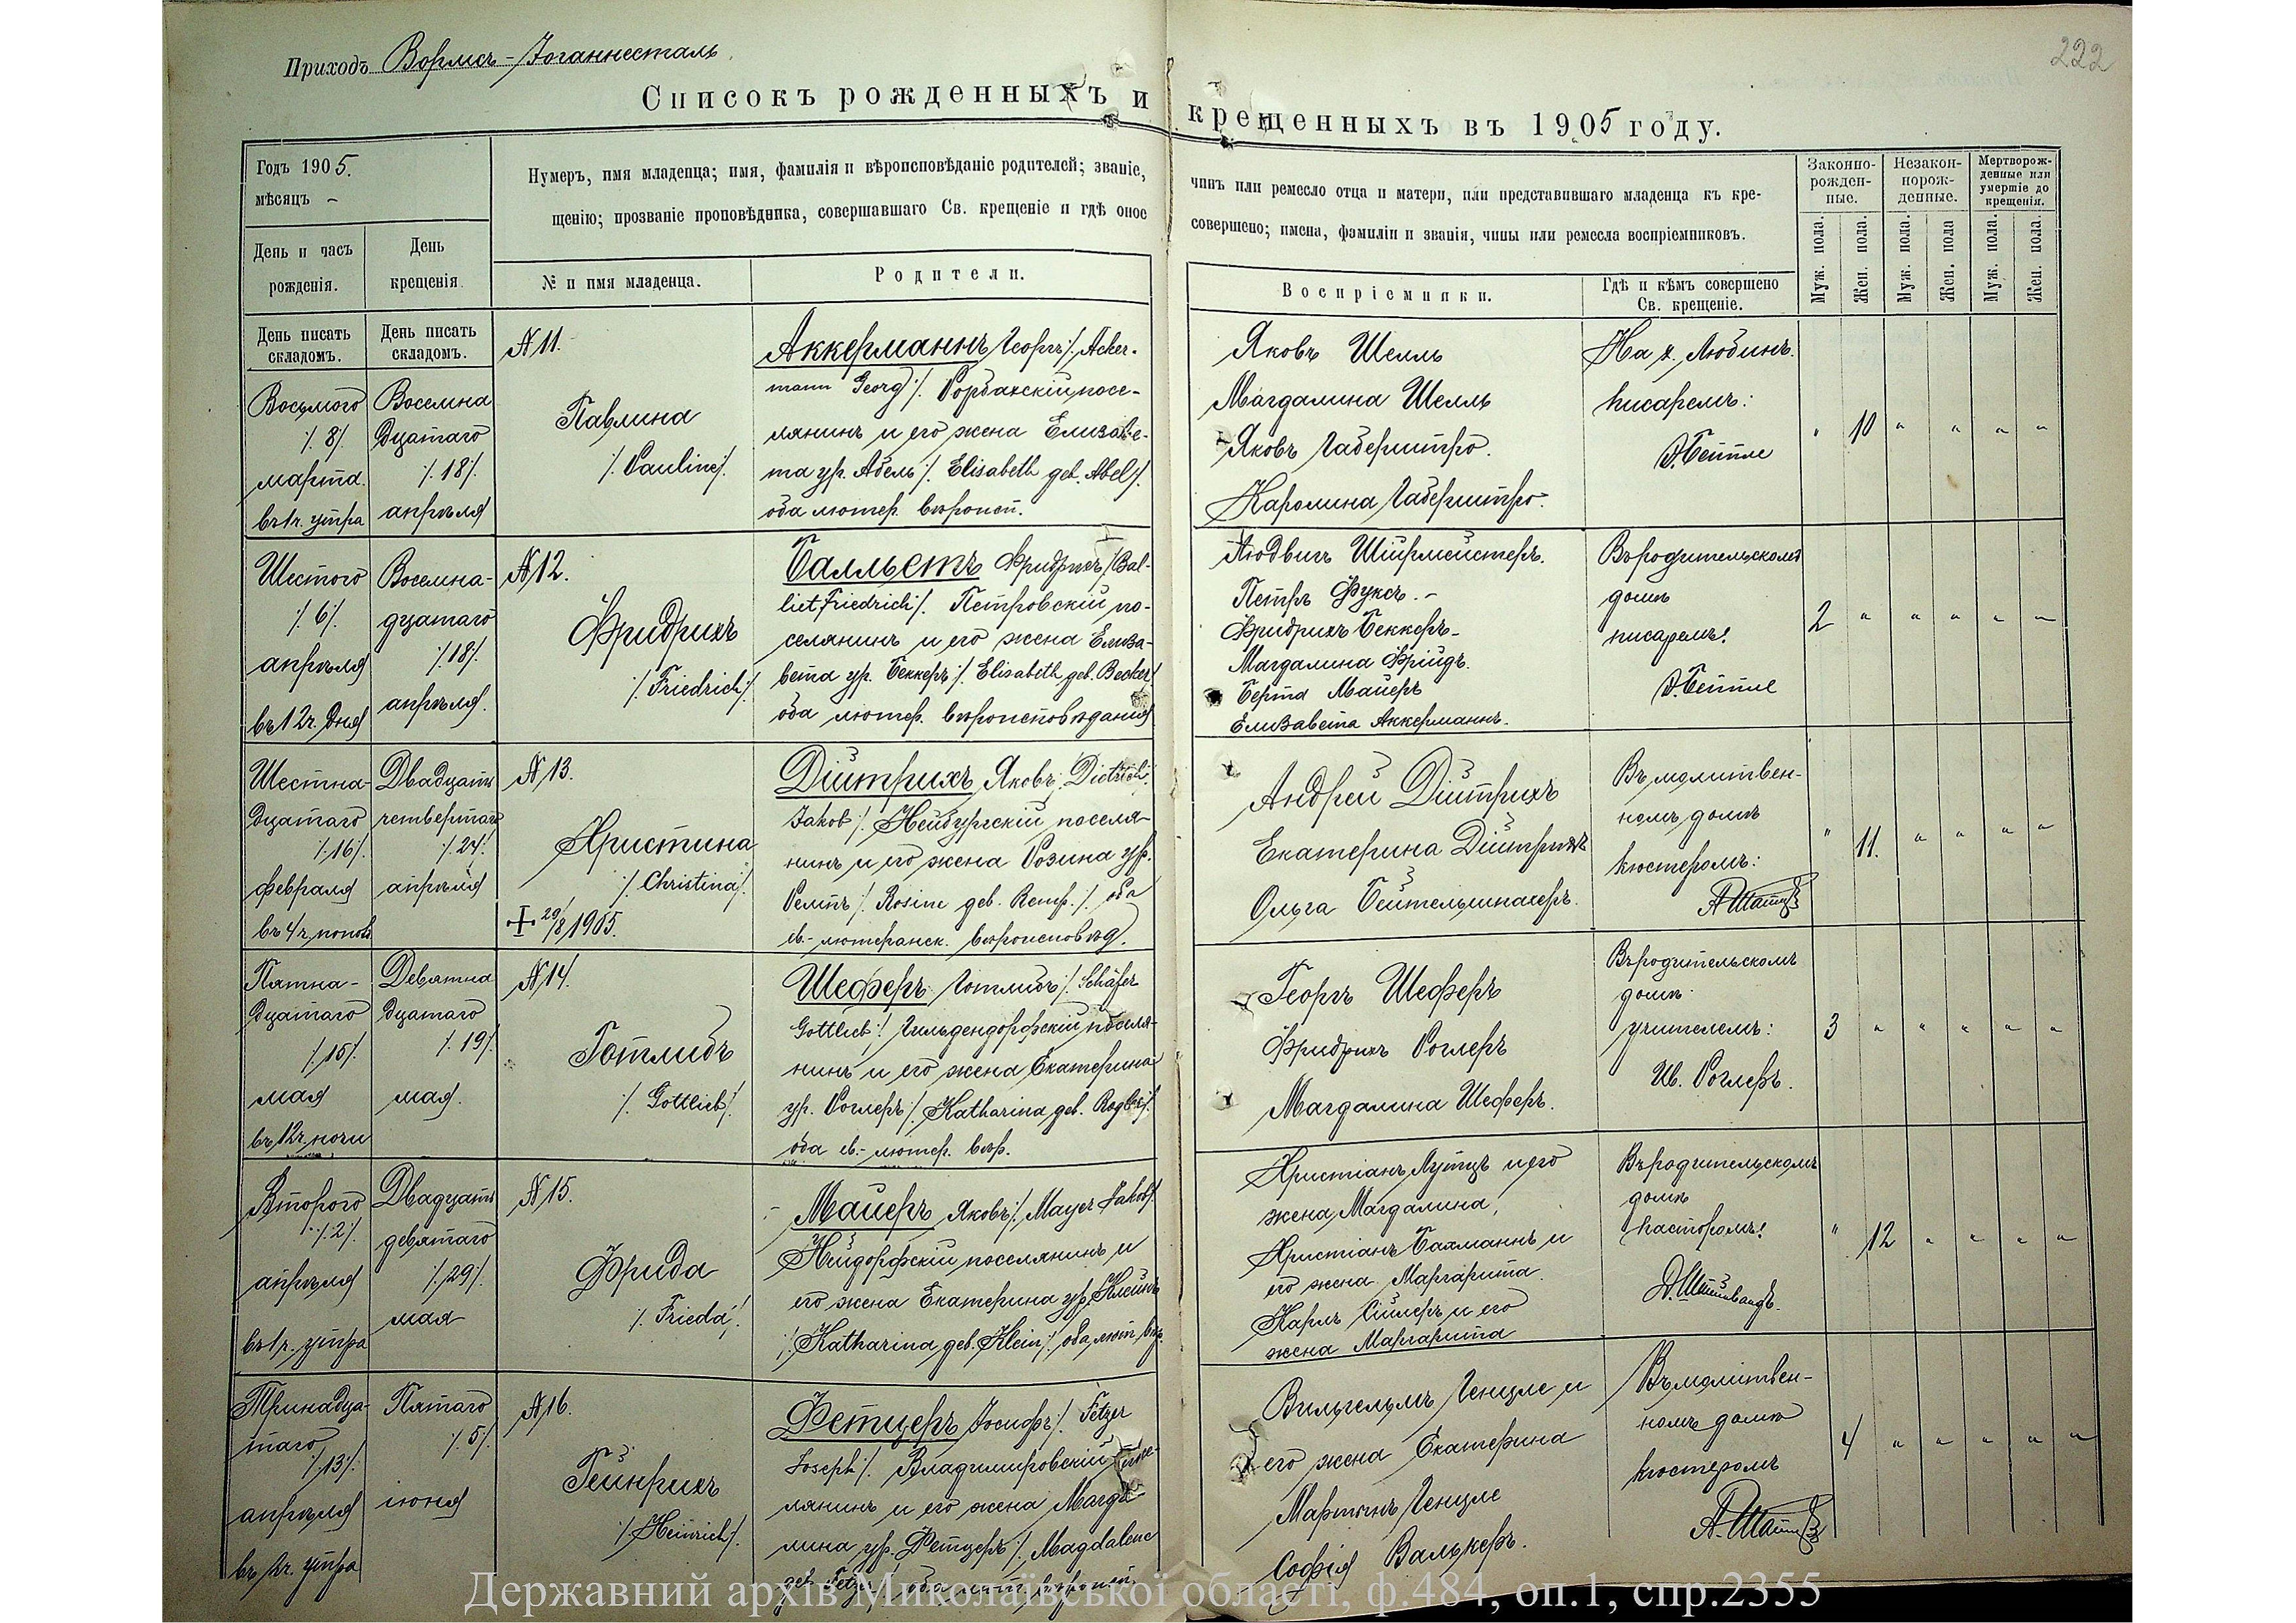 Приходъ Вормсъ-Іоганнесталь.
222
Списокъ рожденныхъ и крещенныхъ въ 1905 году.
Годъ 1905.
мѣсяцъ –
Нумеръ, имя младенца; имя, фамилія и вѣроисповѣданіе родителей; званіе, чинъ или ремесло отца и матери, или представившаго младенца къ кре-
щенію; прозваніе проповѣдника, совершавшаго Св. крещеніе и гдѣ оное совершено; имена, фамиліи и званія, чины или ремесла воспріемниковъ.
Законно-
рожден-
ные.
Незакон-
норож-
денные.
Мертворож-
денные или
умершіе до
крещенія.
День и часъ
рожденія.
День
крещенія.
№ и имя младенца.
Родители.
Воспріемники.
Гдѣ и кѣмъ совершено
Св. крещеніе.
Муж. пола.
Жен. пола.
Муж. пола.
Жен. пола
Муж. пола.
Жен. пола.
День писать
складомъ.
День писать
складомъ.
Восьмого
/.8/.
марта.
въ 1 ч. утра
Восемна
дцатаго
/.18/.
апрѣля
№ 11.
Павлина
/. Pauline/.
Аккерманнъ Георгъ /. Acker-
mann Georg /. Рорбахскій посе-
лянинъ и его жена Елизаве-
та ур. Абель /. Elisabeth geb. Abel /.
оба лютер. вѣроисп.
Яковъ Шелль
Магдалина Шелль
Яковъ Габерштро.
Каролина Габерштро.
На х. Любинъ.
писаремъ:
" 10 " " " "
Шестого
/.6/.
апрѣля
въ 12 ч. дня
Восемна-
дцатаго
/.18/.
апрѣля.
№ 12.
Фридрихъ
/. Friedrich/.
Балльетъ Фридрихъ /. Bal-
liet Friedrich /. Петровскій по-
селянинъ и его жена Елиза-
вета ур. Беккеръ /. Elisabeth geb. Becker /
оба лютер. вѣроисповѣданія
Людвигъ Ширмейстеръ.
Петръ Фуксъ. –
Фридрихъ Беккеръ –
Магдалина Фрійдъ.
Берта Майеръ
Елизавета Аккерманнъ.
Въ родительскомъ
домѣ
писаремъ:
2 " " " " "
Шестна-
дцатаго
/.16/.
февраля
въ 4 ч. попол.
Двадцать
четвертаго
/.24/.
апрѣля
№ 13.
Христина
/. Christina/.
+ 29/8 1905.
Дійтрихъ Яковъ /. Dietrich
Jakob /. Нейбургскій поселя-
нинъ и его жена Розина ур.
Ремпъ /. Rosine geb. Remp. /. оба
ев.-лютеранск. вѣроисповѣд.
Андрей Дійтрихъ
Екатерина Дійтрихъ
Ольга Бейтельшпахеръ.
Въ молитвен-
номъ домѣ
кюстеромъ:
" 11. " " " "
Пятна-
дцатаго
/.15/.
мая
въ 12 ч. ночи
Девятна
дцатаго
/.19/.
мая.
№ 14.
Готлибъ
/. Gottlieb/.
Шеферъ Готлибъ /. Schäfer
Gottlieb /. Гильдендорфскій поселя-
нинъ и его жена Екатерина
ур. Роглеръ /. Katharina geb. Rogler /.
оба ев.-лютер. вѣр.
Георгъ Шеферъ
Фридрихъ Роглеръ
Магдалина Шеферъ.
Въ родительскомъ
домѣ
учителемъ:
Ив. Роглеръ.
3 " " " " "
Второго
/.2/.
апрѣля
въ 1 ч. утра
Двадцать
девятаго
/.29/.
мая
№ 15.
Фрида
/. Frieda/.
Майеръ Яковъ /. Mayer Jakob /.
Нейдорфскій поселянинъ и
его жена Екатерина ур. Клейнъ
/. Katharina geb. Klein /. оба лют. вѣр.
Христіанъ Лутцъ и его
жена Магдалина,
Христіанъ Бахманнъ и
его жена Маргарита.
Карлъ Сійлеръ и его
жена Маргарита
Въ родительскомъ
домѣ
пасторомъ:
Д. Штейнвандъ.
" 12 " " " "
Тринадца-
таго
/.13/.
апрѣля
въ 1 ч. утра
Пятаго
/.5/.
іюня
№ 16.
Гейнрихъ
/. Heinrich/.
Фетцеръ Іосифъ /. Fetzer
Joseph /. Владимировскій посе-
лянинъ и его жена Магда-
лина ур. Фетцеръ /. Magdalene
geb. Fetzer /. оба лют. вѣроисп.
Вильгельмъ Генцле и
его жена Екатерина
Мартинъ Генцле
Софія Валькеръ.
Въ молитвен-
номъ домѣ
кюстеромъ
4 " " " " "
Державний архів Миколаївської області, ф.484, оп.1, спр.2355